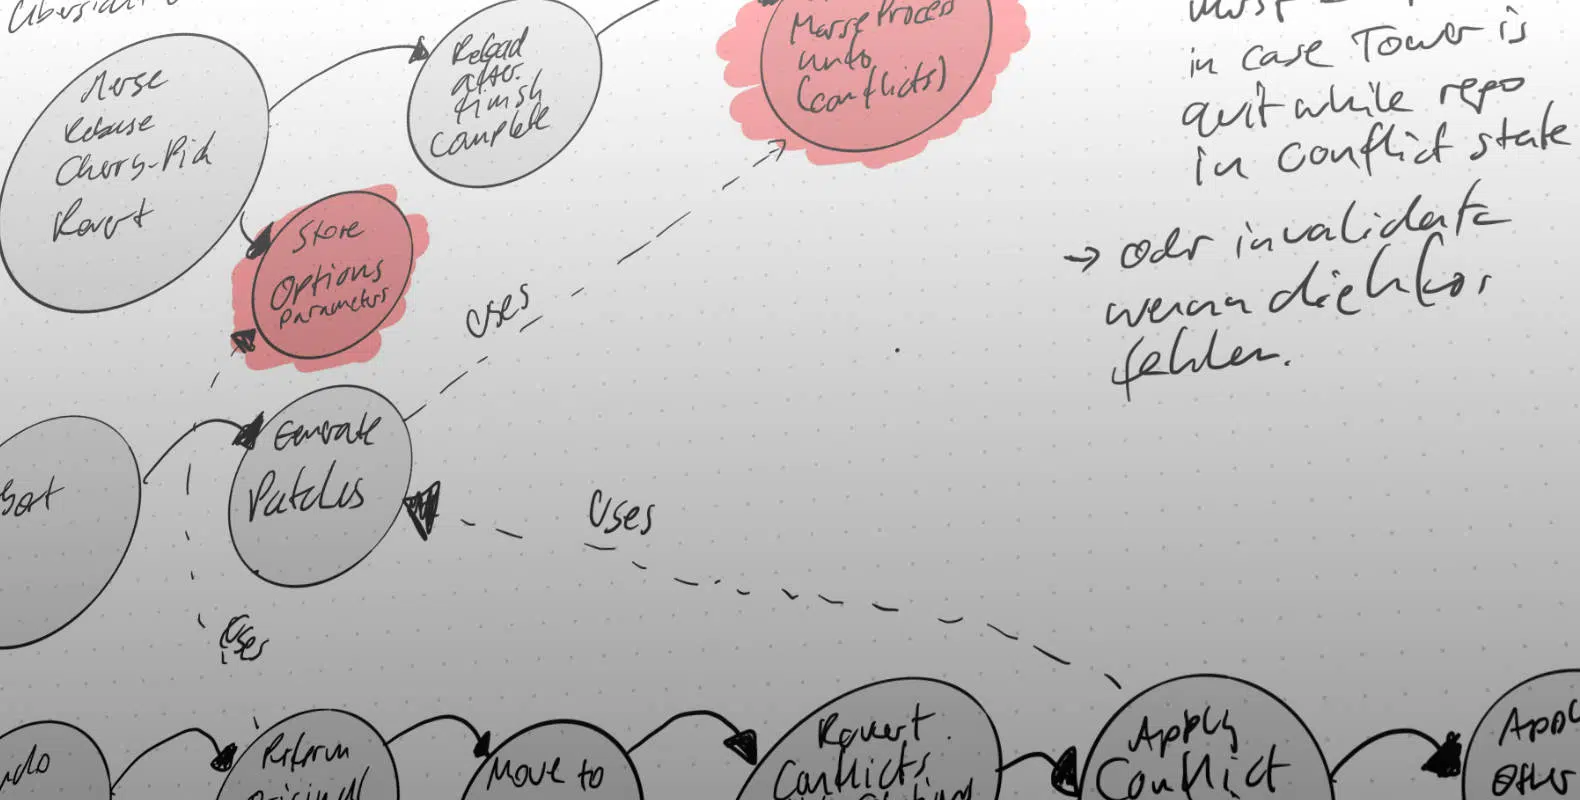 Merge
Rebase
Cherry-Pick
Revert
Reload
after
finish
complete
Merge Process
into
(conflicts)
in case Tower is
quit while repo
in conflict state
→ oder invalidate
wenn die
fehlen.
Store
Options
Parameters
uses
Generate
Patches
Uses
Uses
Perform
Original
Move to
Revert
Conflicts
Apply
Conflict
Apply
Other